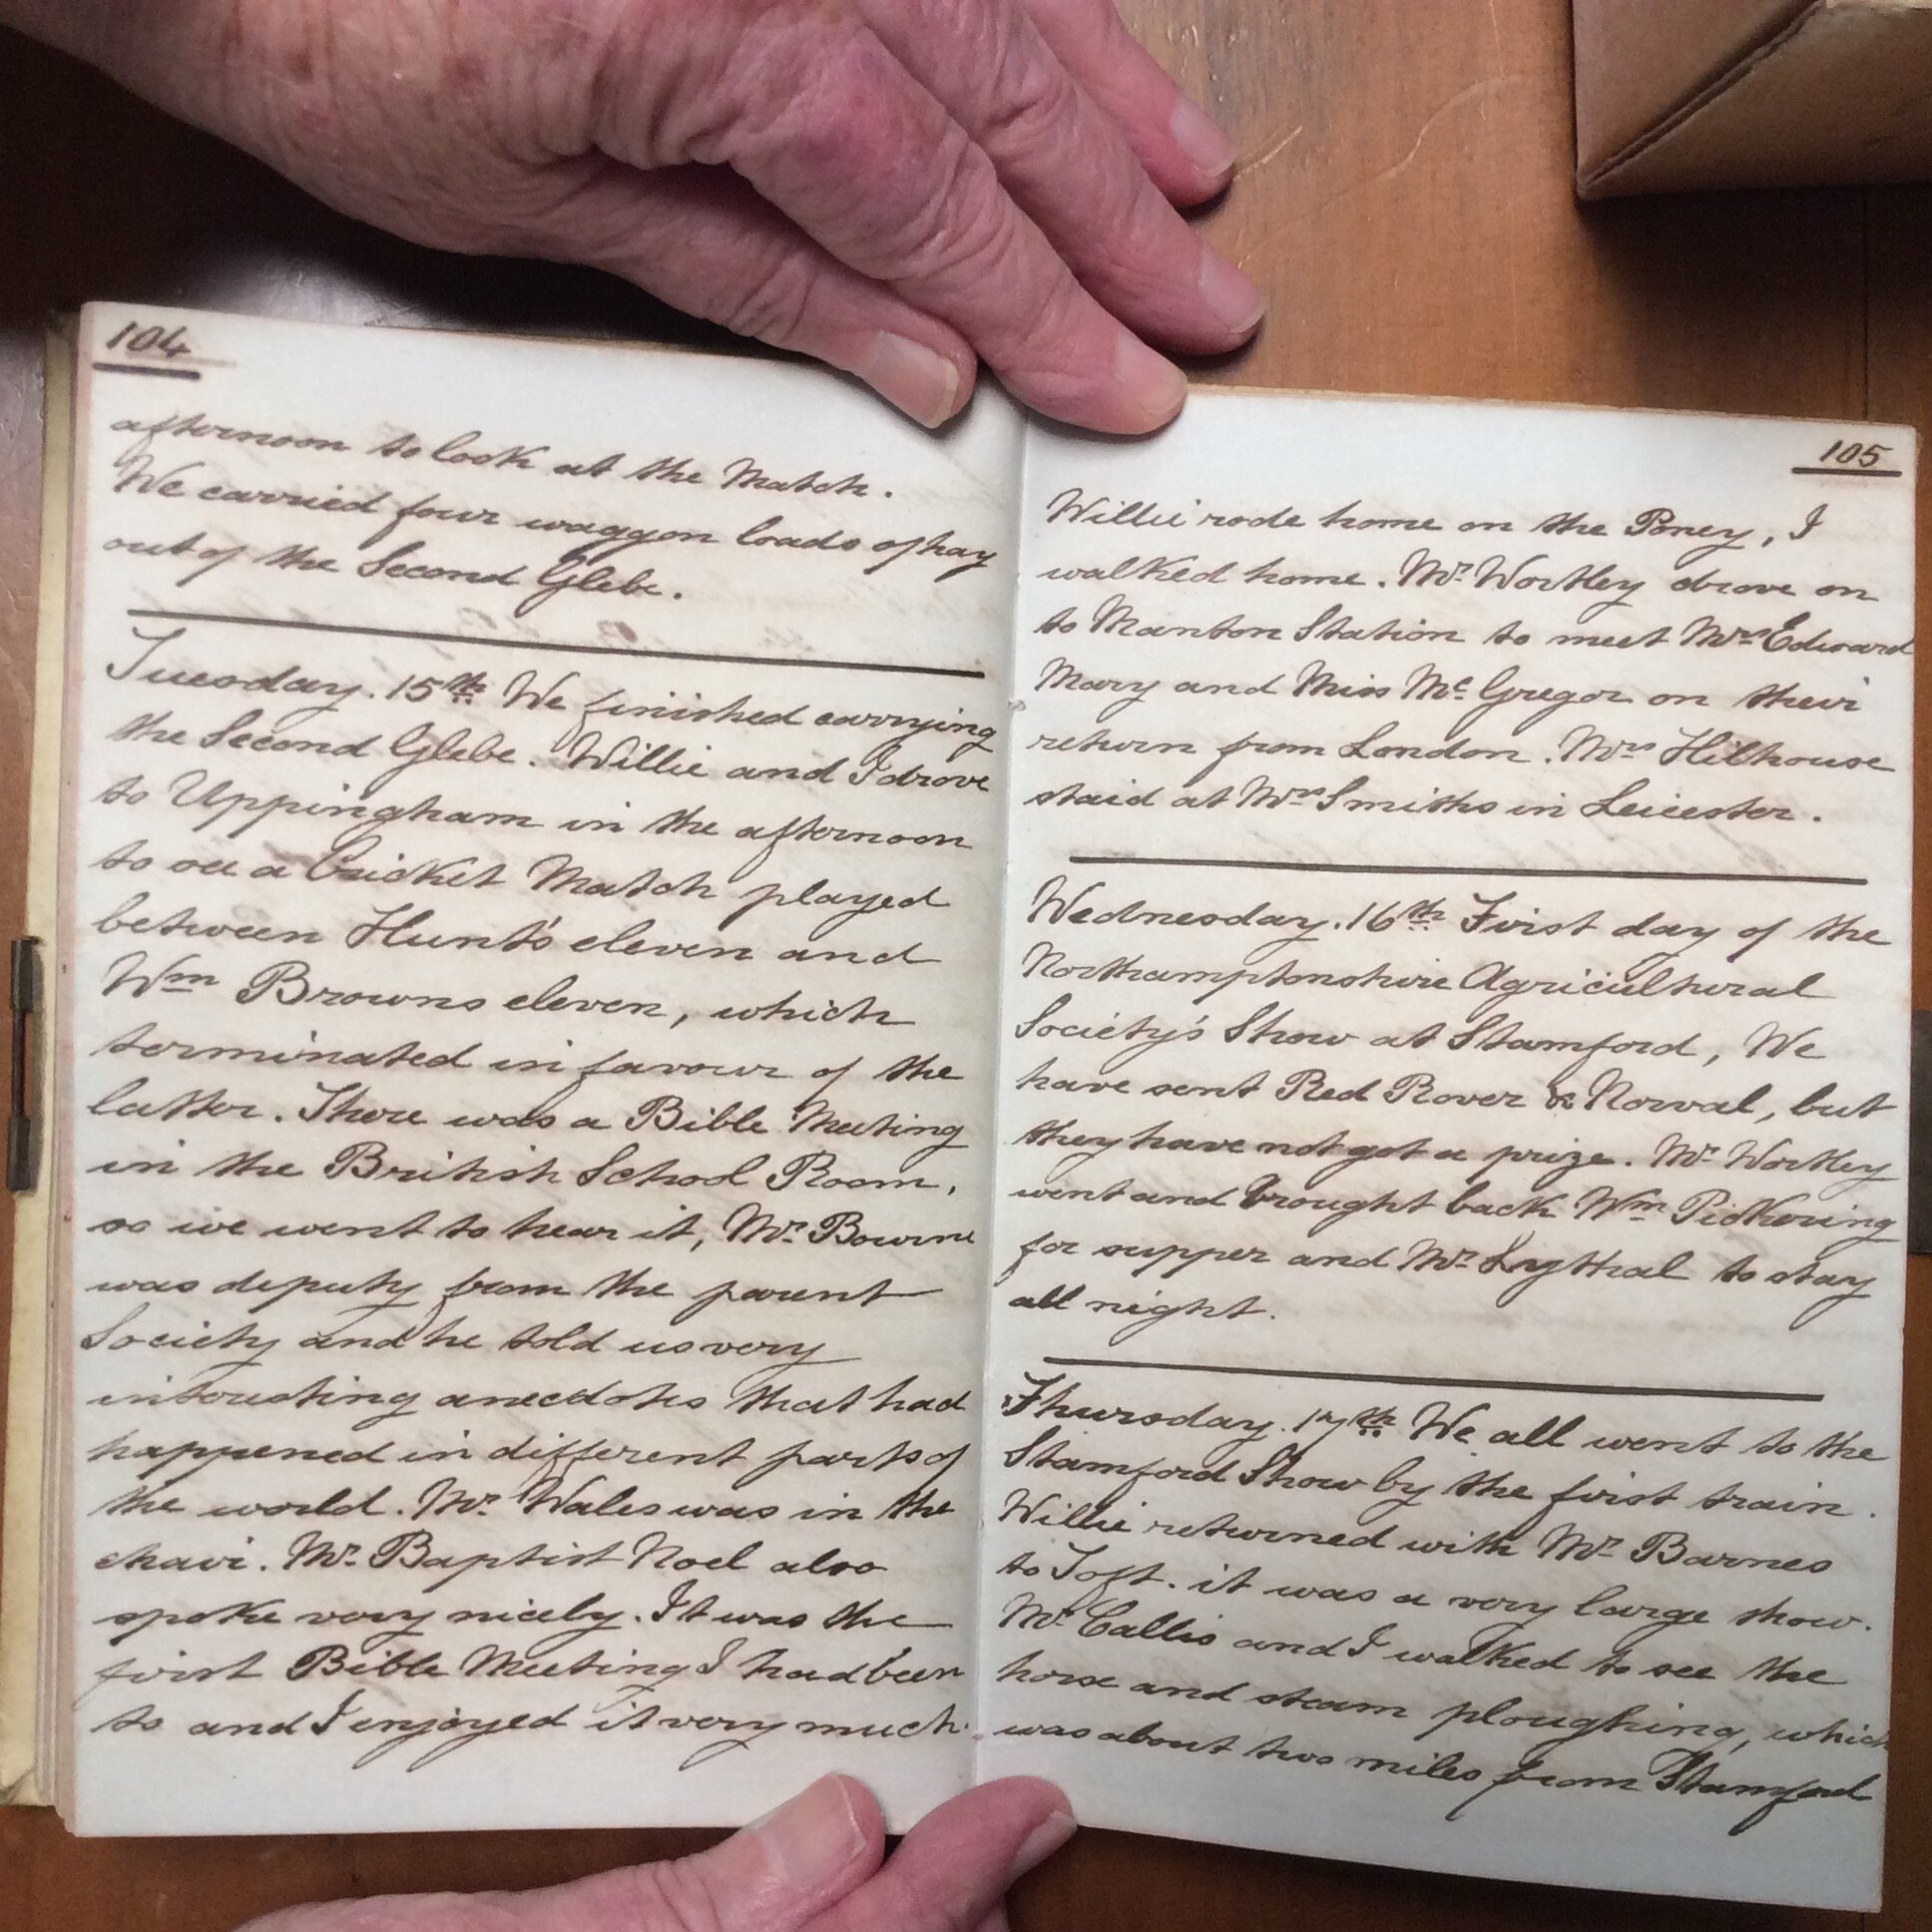 104
afternoon to look at the Match.
We carried four waggon loads of hay
out of the Second Glebe.
Tuesday. 15th. We finished carrying
the Second Glebe. Willie and I drove
to Uppingham in the afternoon
to see a Cricket Match played
between Hunt's eleven and
Wm Browns eleven, which
terminated in favour of the
latter. There was a Bible Meeting
in the British School Room,
so we went to hear it, Mr. Bourne
was deputy from the parent
Society and he told us very
interesting anecdotes that had
happened in different parts of
the world. Mr. Wales was in the
chair. Mr. Baptist Noel also
spoke very nicely. It was the
first Bible Meeting I had been
to and I enjoyed it very much.
105
Willie rode home on the Poney, I
walked home. Mr. Wortley drove on
to Manton Station to meet Mrs Edward
Mary and Miss Mc Gregor on their
return from London. Mrs Hilhouse
staid at Mrs Smiths in Leicester.
Wednesday. 16th First day of the
Northamptonshire Agricultural
Society's Show at Stamford, We
have sent Red Rover & Norval, but
they have not got a prize. Mr. Wortley
went and brought back Wm Pickering
for supper and Mr. Lythal to stay
all night.
Thursday. 17th We all went to the
Stamford Show by the first train.
Willie returned with Mr. Barnes
to Toft. it was a very large show.
Mr. Callis and I walked to see the
horse and steam ploughing, which
was about two miles from Stamford